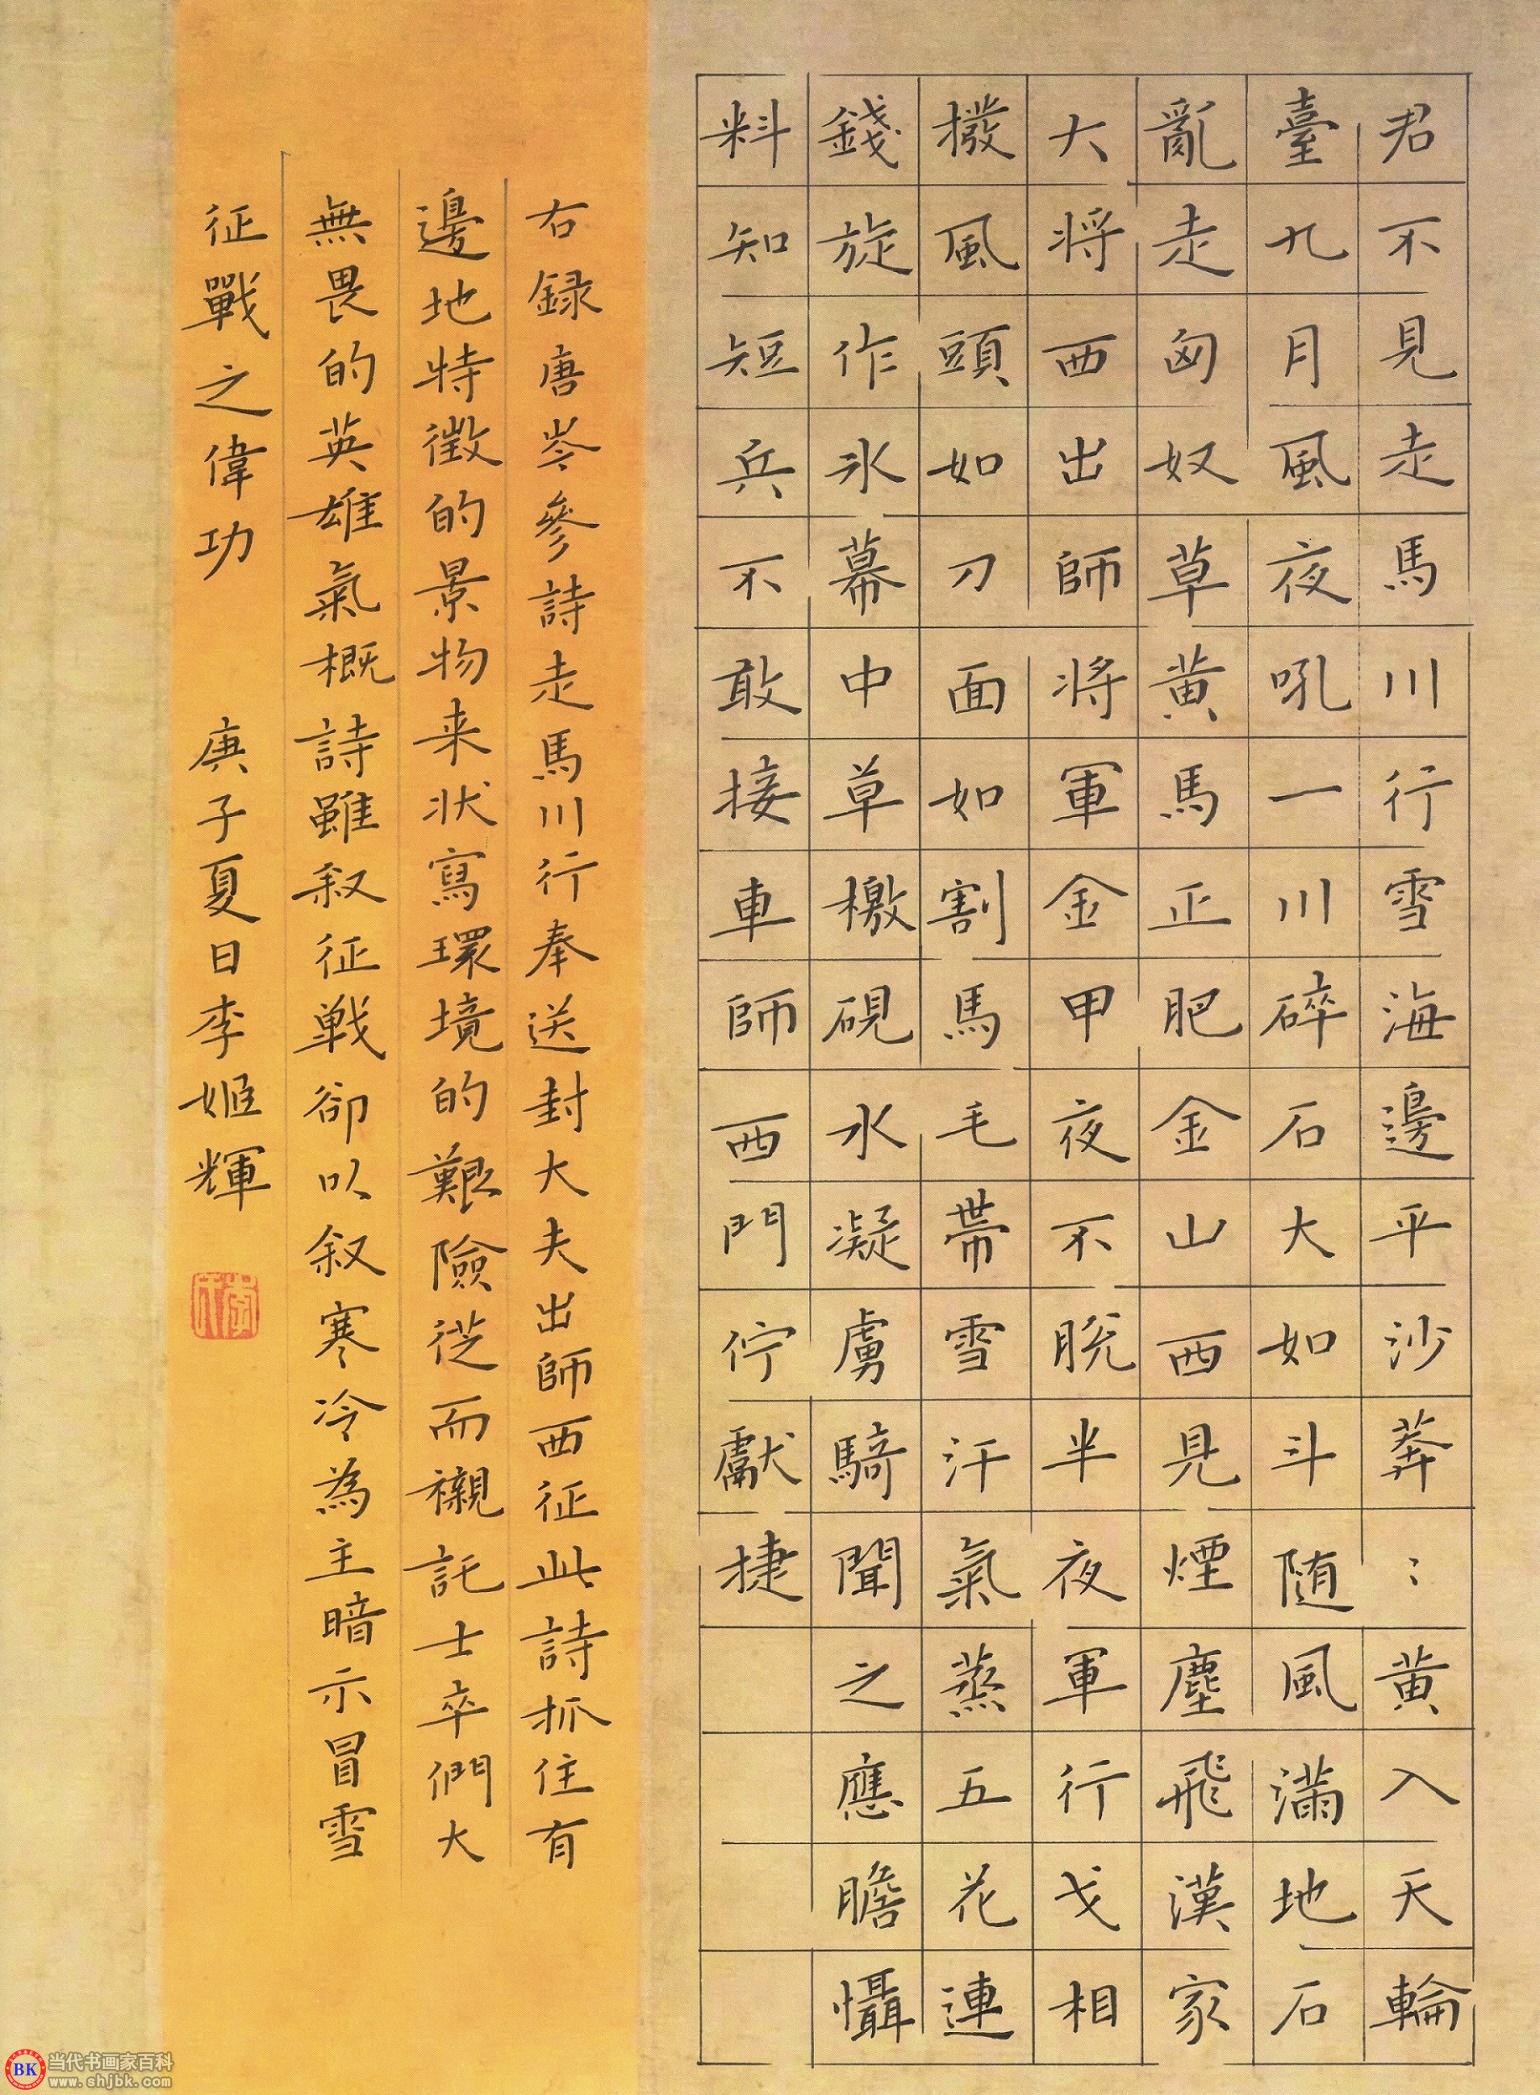 君不見走馬川行雪海邊平沙莽〻黃入天輪
臺九月風夜吼一川碎石大如斗随風滿地石
亂走匈奴草黃馬正肥金山西見煙塵飛漢家
大將西出師將軍金甲夜不脫半夜軍行戈相
撥風頭如刀面如割馬毛帶雪汗氣蒸五花連
錢旋作冰幕中草檄硯水凝虜騎聞之應膽懾
料知短兵不敢接車師西門佇獻捷
右録唐岑參詩走馬川行奉送封大夫出師西征此詩抓住有
邊地特徵的景物来状寫環境的艱險從而襯託士卒們大
無畏的英雄氣概詩雖叙征戰卻以叙寒冷為主暗示冒雪
征戰之偉功 庚子夏日李姬輝
当代书画家百科
www.shjbk.com
BK